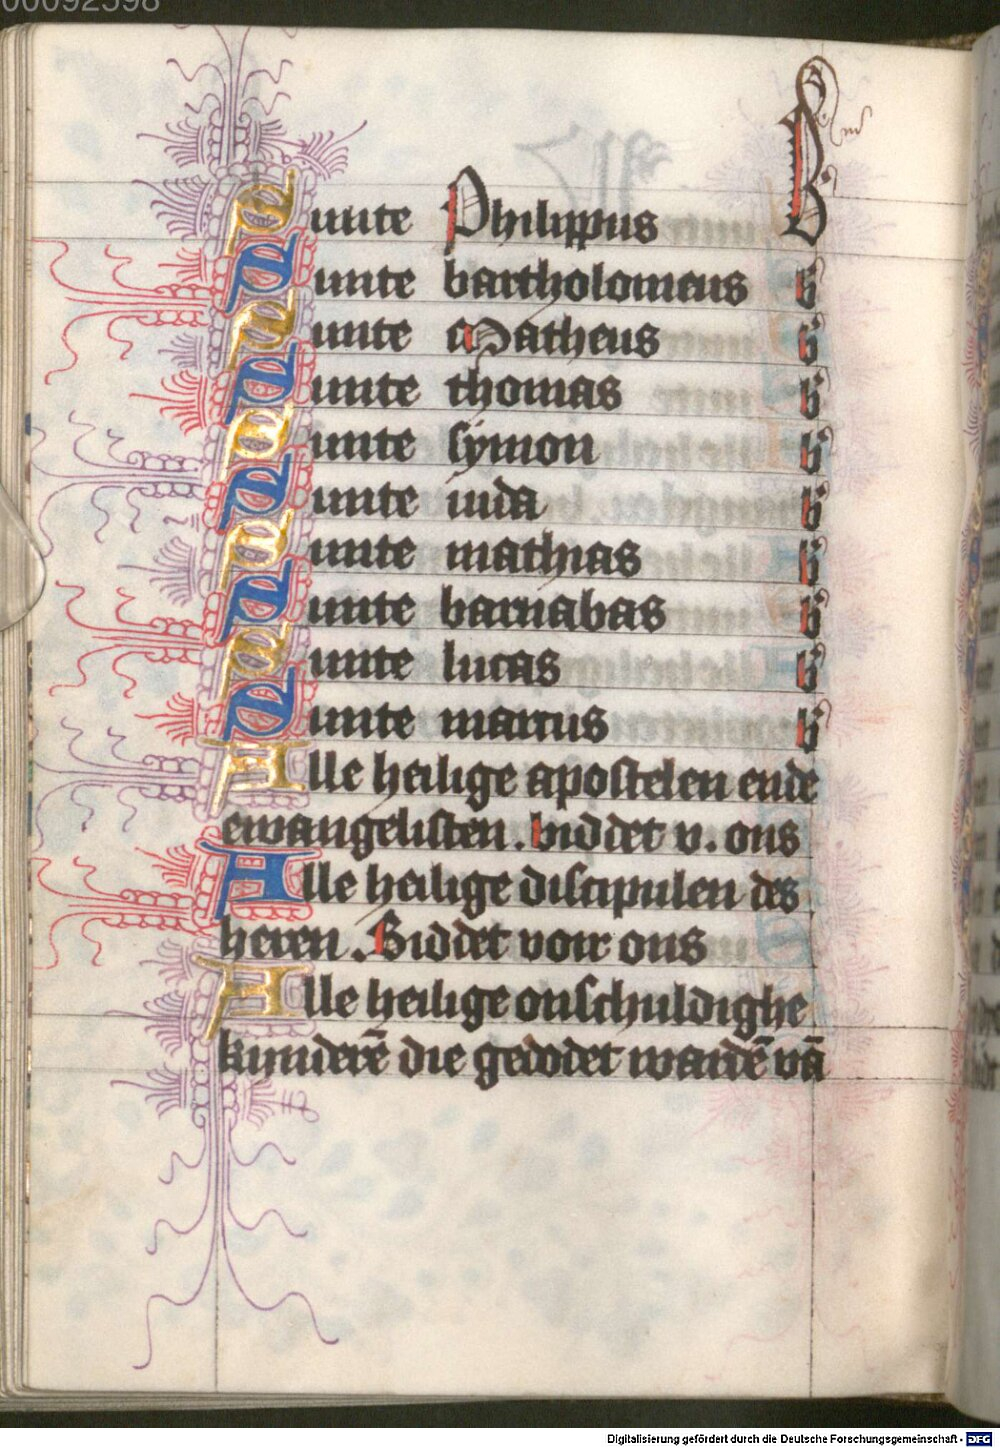 00092598
Sunte Philippus B
Sunte bartholomeus b
Sunte Matheus b
Sunte thomas b
Sunte symon b
Sunte iuda b
Sunte mathias b
Sunte barnabas b
Sunte lucas b
Sunte marcus b
Alle heilige apostelen ende
ewangelisten . biddet v. ons
Alle heilige discipulen des
heren . Biddet voir ons
Alle heilige onschuldighe
kynderē die gedodet wardē vā
Digitalisierung gefördert durch die Deutsche Forschungsgemeinschaft - DFG